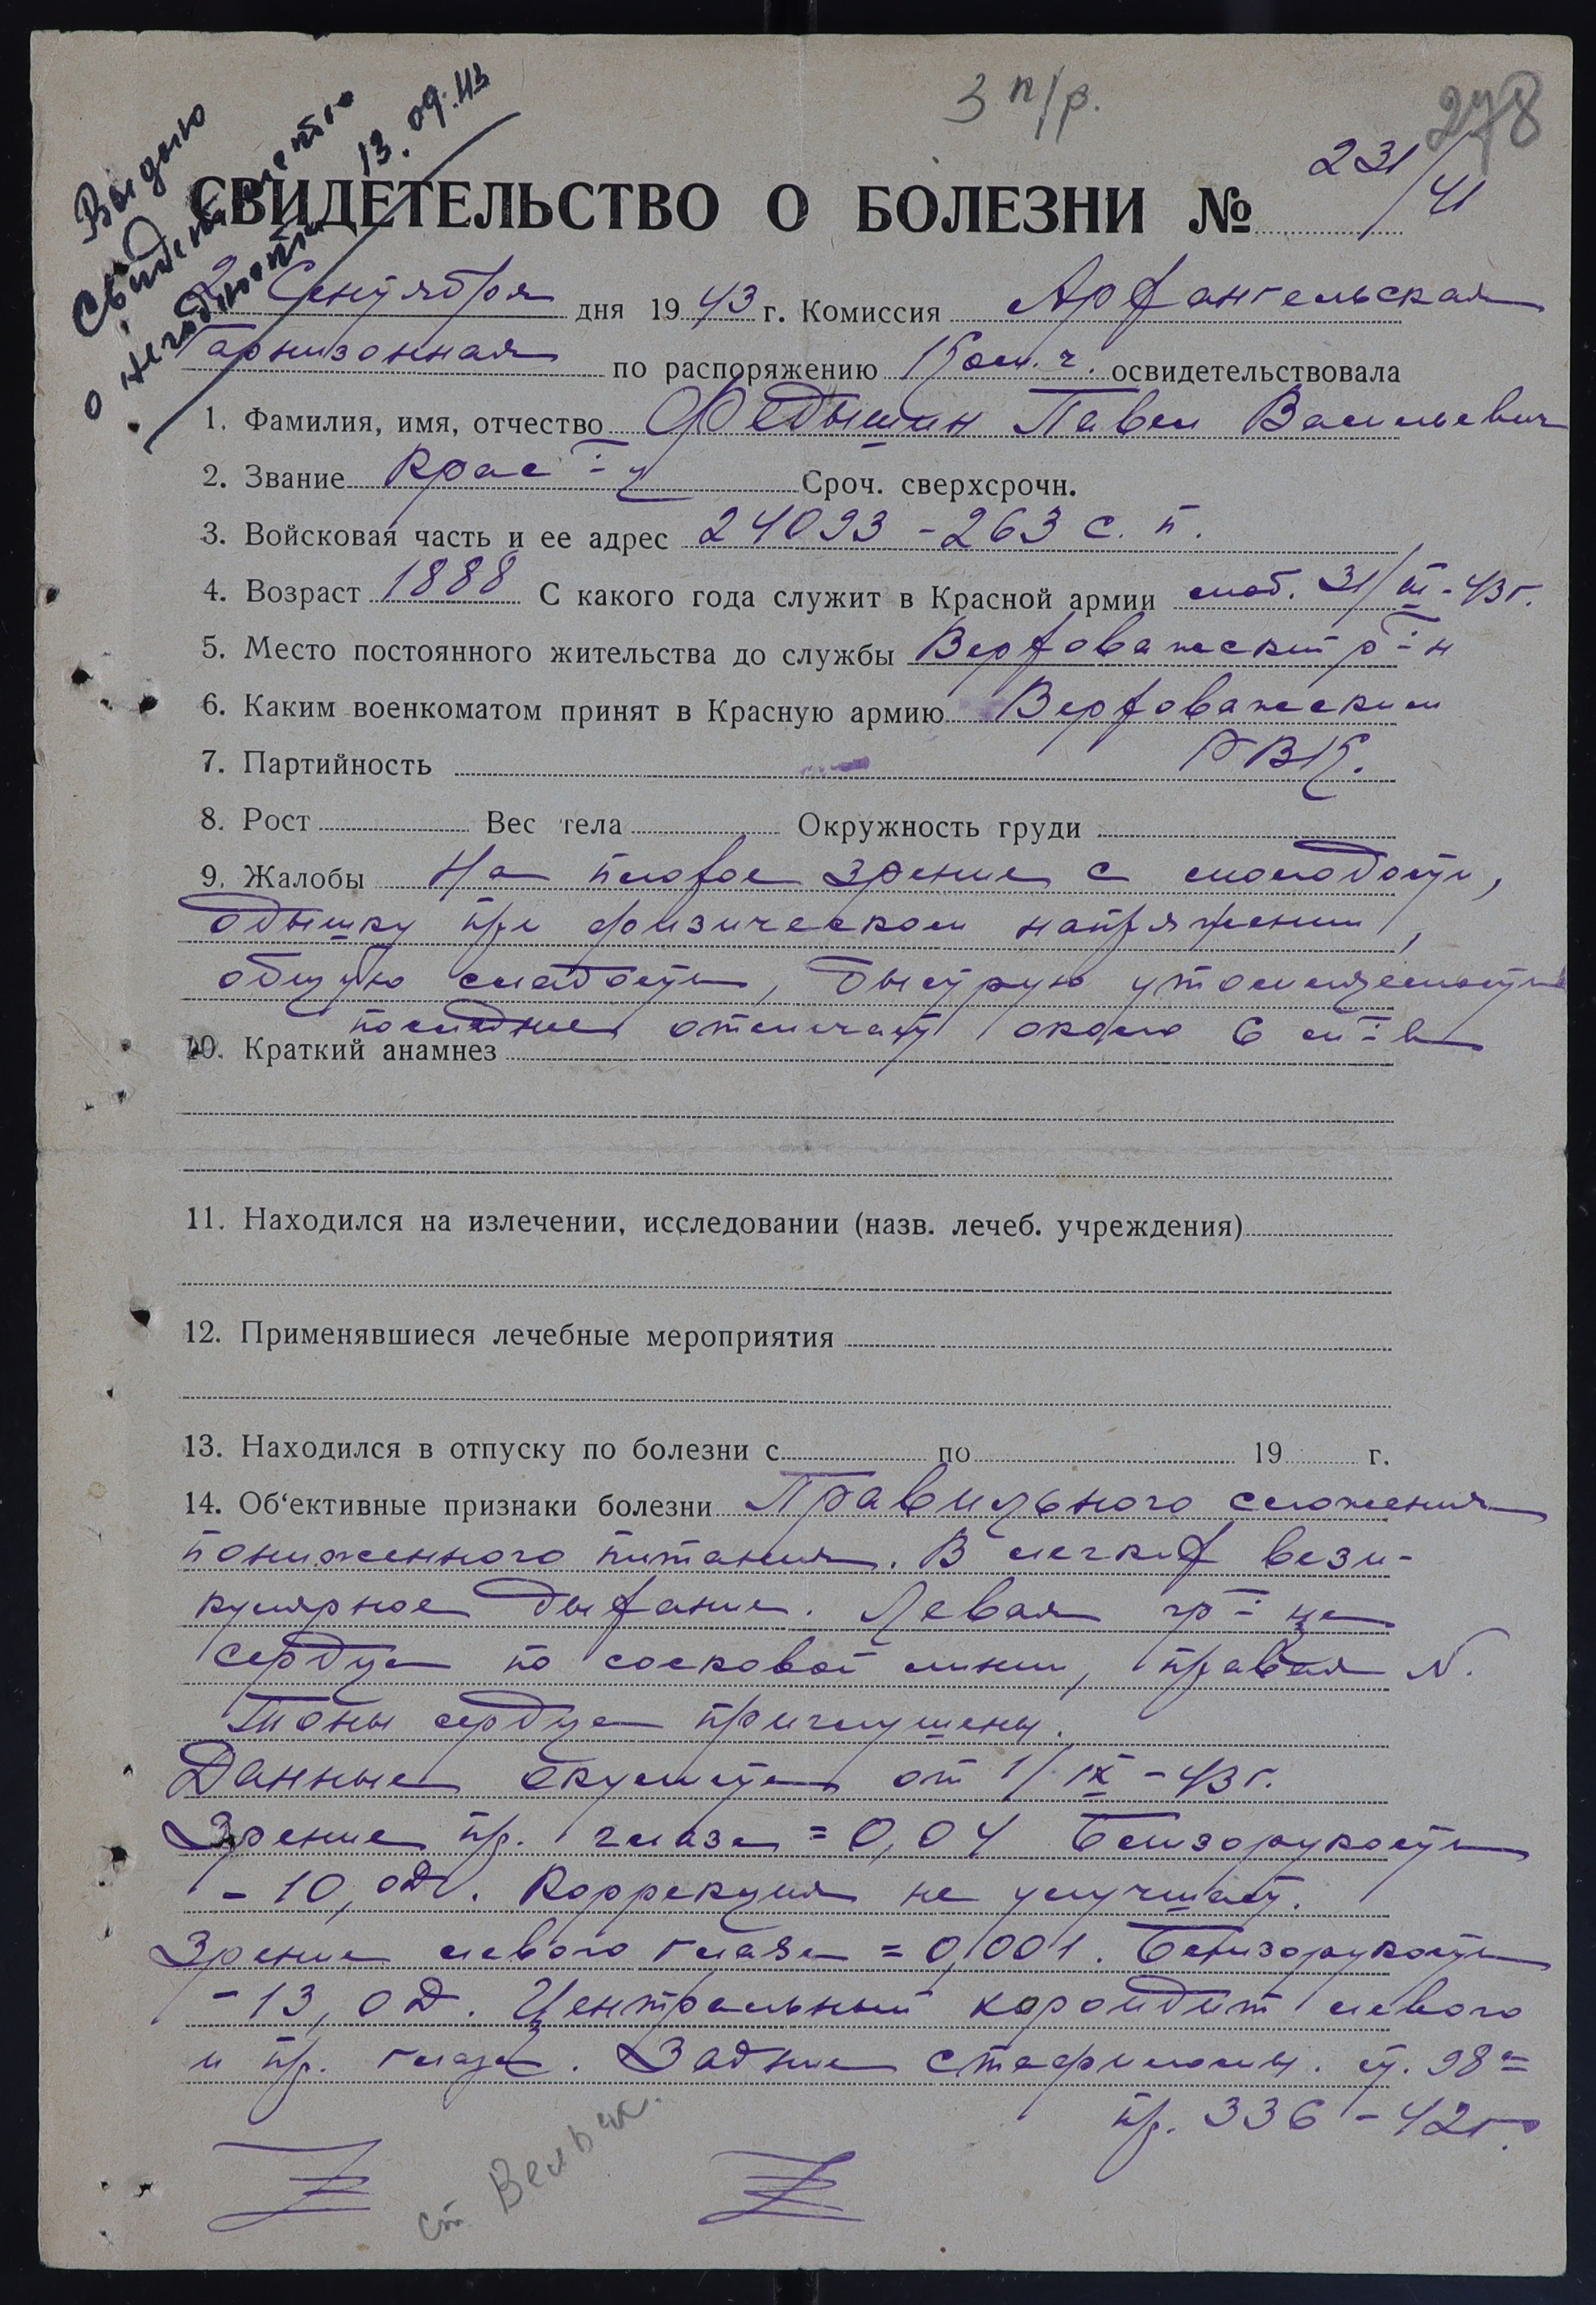 3 п/р.
278
Выдано
свидетельство
о негодности 13.09.43
СВИДЕТЕЛЬСТВО О БОЛЕЗНИ № 231/41
2 Сентября дня 1943 г. Комиссия Архангельская
Гарнизонная по распоряжению Ком. ч. освидетельствовала
1. Фамилия, имя, отчество Федышин Павел Васильевич
2. Звание Крас-ц Сроч. сверхсрочн.
3. Войсковая часть и ее адрес 24093 - 263 с. п.
4. Возраст 1888 С какого года служит в Красной армии моб. 31/III-43г.
5. Место постоянного жительства до службы Верховажский р-н
6. Каким военкоматом принят в Красную армию Верховажским
7. Партийность РВК.
8. Рост Вес тела Окружность груди
9. Жалобы На плохое зрение с молодости,
одышку при физическом напряжении,
общую слабость, быструю утомляемость
последнее отмечает около 6 м-в
10. Краткий анамнез
11. Находился на излечении, исследовании (назв. лечеб. учреждения)
12. Применявшиеся лечебные мероприятия
13. Находился в отпуску по болезни с по 19 г.
14. Об‘ективные признаки болезни Правильного сложения
пониженного питания. В легких вези-
кулярное дыхание. Левая гр-ца
сердца по сосковой линии, правая N.
Тоны сердца приглушены.
Данные окулиста от 1/IX-43г.
Зрение пр. глаза = 0,04 Близорукость
- 10,0Д. Коррекция не улучшает.
Зрение левого глаза = 0,001. Близорукость
- 13,0Д. Центральный хороидит левого
и пр. глаза. Задние стафиломы. ст. 98а
пр. 336 - 42г.
ст. Вельск.